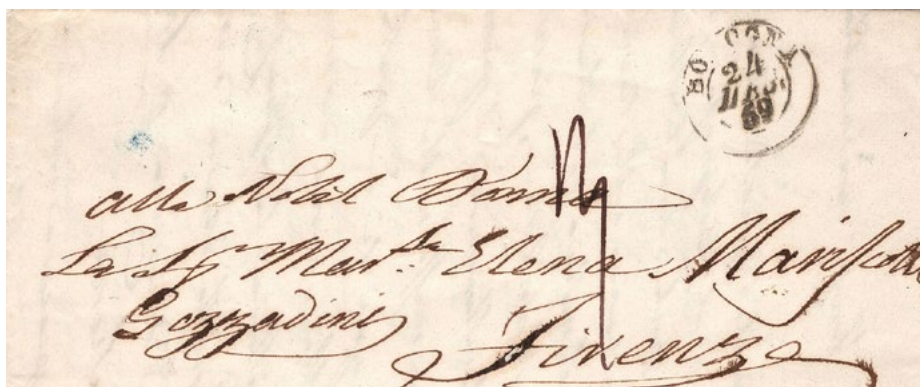 BOLOGNA
24
MAR.
59
alla Nobil Dama
La Sig.ra March.sa Elena Mariscotti
Gozzadini
Firenze